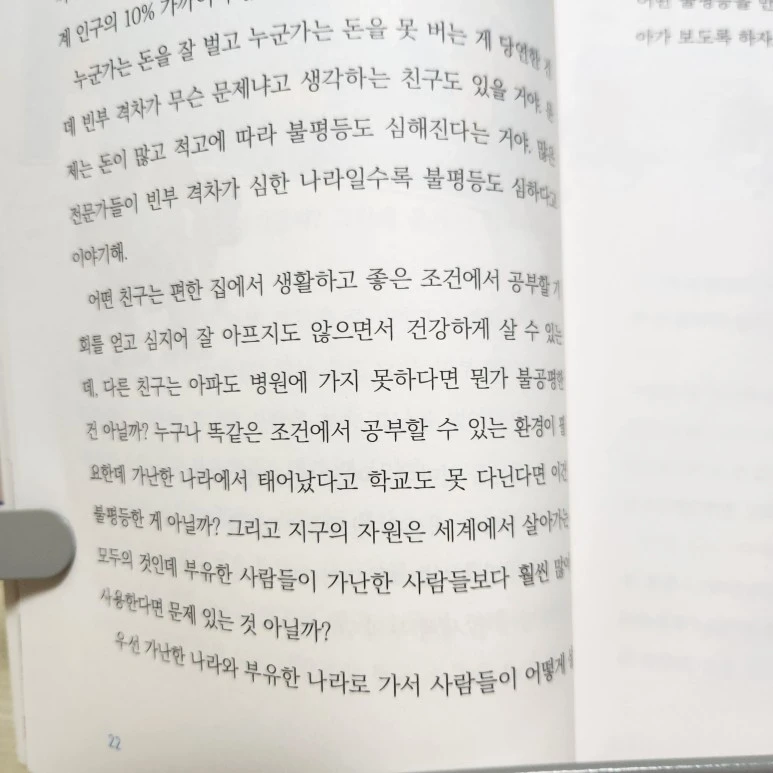 계 인구의 10% 가까이
누군가는 돈을 잘 벌고 누군가는 돈을 못 버는 게 당연한
데 빈부 격차가 무슨 문제냐고 생각하는 친구도 있을 거야. 문
제는 돈이 많고 적고에 따라 불평등도 심해진다는 거야. 많은
전문가들이 빈부 격차가 심한 나라일수록 불평등도 심하다고
이야기해.
어떤 친구는 편한 집에서 생활하고 좋은 조건에서 공부할 기
회를 얻고 심지어 잘 아프지도 않으면서 건강하게 살 수 있는
데, 다른 친구는 아파도 병원에 가지 못하다면 뭔가 불공평한
건 아닐까? 누구나 똑같은 조건에서 공부할 수 있는 환경이 필
요한데 가난한 나라에서 태어났다고 학교도 못 다닌다면 이건
불평등한 게 아닐까? 그리고 지구의 자원은 세계에서 살아가는
모두의 것인데 부유한 사람들이 가난한 사람들보다 훨씬 많이
사용한다면 문제 있는 것 아닐까?
우선 가난한 나라와 부유한 나라로 가서 사람들이 어떻게
22
야가 보도록 하자